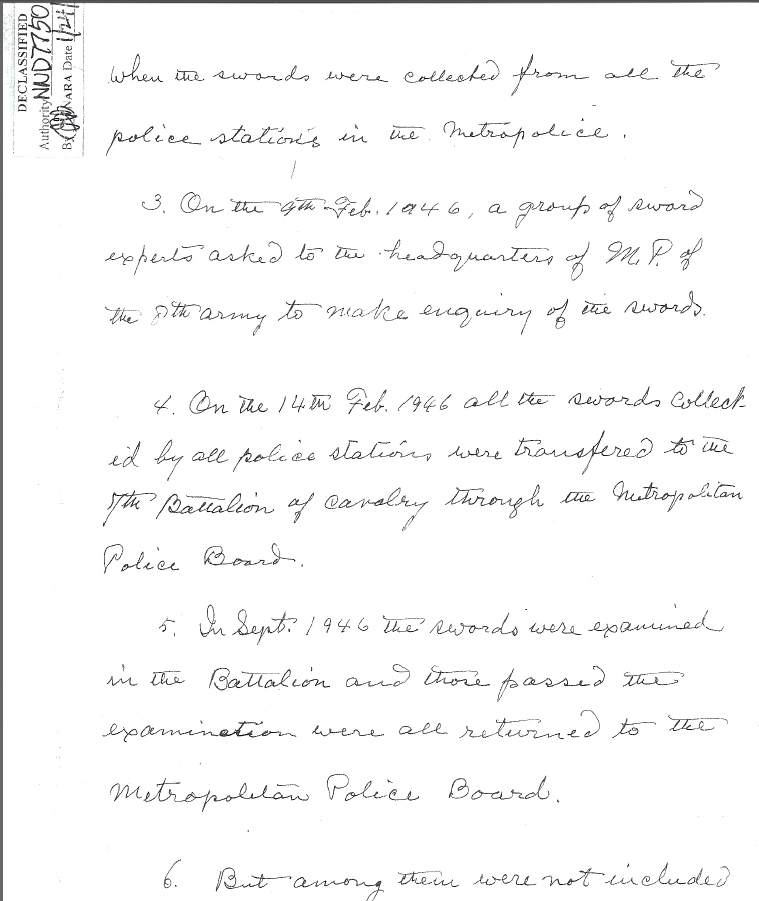 DECLASSIFIED
Authority NND 7750
By NARA Date 1/24/
when the swords were collected from all the
police stations in the Metropolice.
3. On the 9th Feb. 1946, a group of sword
experts asked to the headquarters of M.P. of
the 8th army to make enquiry of the swords.
4. On the 14th Feb. 1946 all the swords collect-
ed by all police stations were transfered to the
7th Battalion of cavalry through the Metropolitan
Police Board.
5. In Sept. 1946 the swords were examined
in the Battalion and those passed the
examination were all returned to the
Metropolitan Police Board.
6. But among them were not included